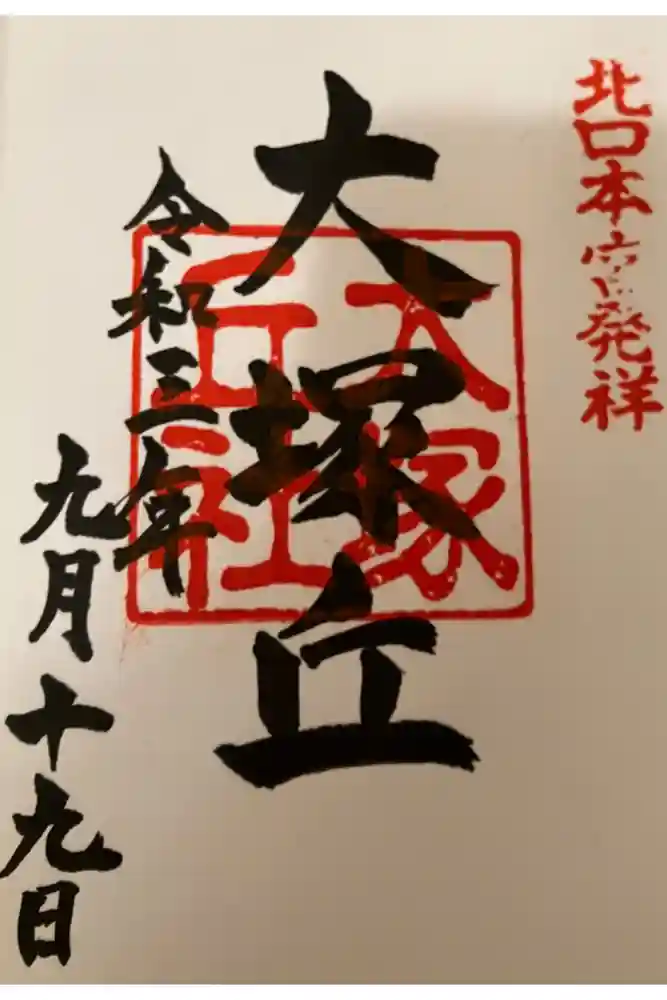 北口本宮発祥
大塚丘
大塚
丘社
令和三年
九月十九日